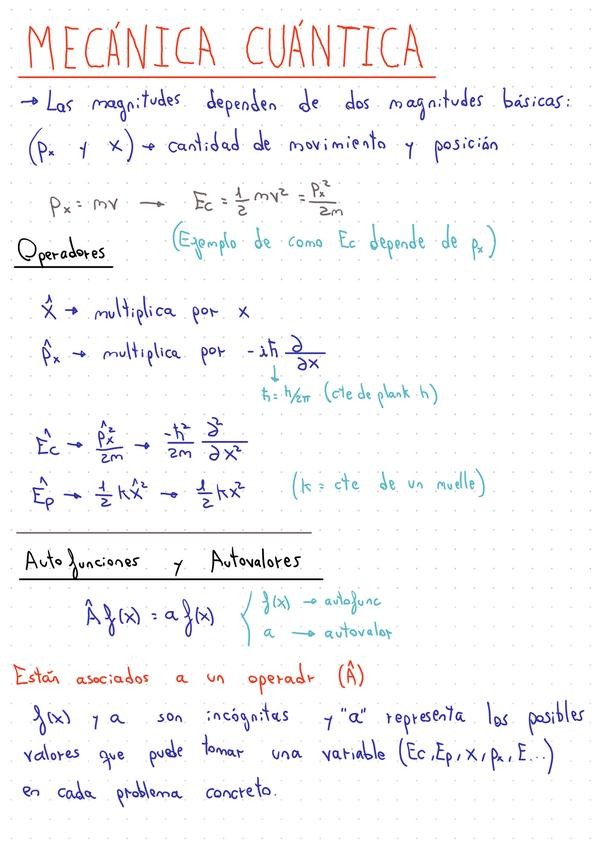 MECÁNICA CUÁNTICA
→ Las magnitudes dependen de dos magnitudes básicas:
(pₓ y x) → cantidad de movimiento y posición
pₓ = mv → Ec = 1/2 mv² = pₓ²/2m
(Ejemplo de como Ec depende de pₓ)
Operadores
x̂ → multiplica por x
p̂ₓ → multiplica por -iħ ∂/∂x
↓
ħ = h/2π (cte de plank h)
Êc → p̂ₓ²/2m → -ħ²/2m ∂²/∂x²
Êp → 1/2 kx̂² → 1/2 kx² (k = cte de un muelle)
Autofunciones y Autovalores
Â f(x) = a f(x) { f(x) → autofunc
a → autovalor
Están asociados a un operadr (Â)
f(x) y a son incógnitas y "a" representa los posibles
valores que puede tomar una variable (Ec, Ep, x, pₓ, E...)
en cada problema concreto.